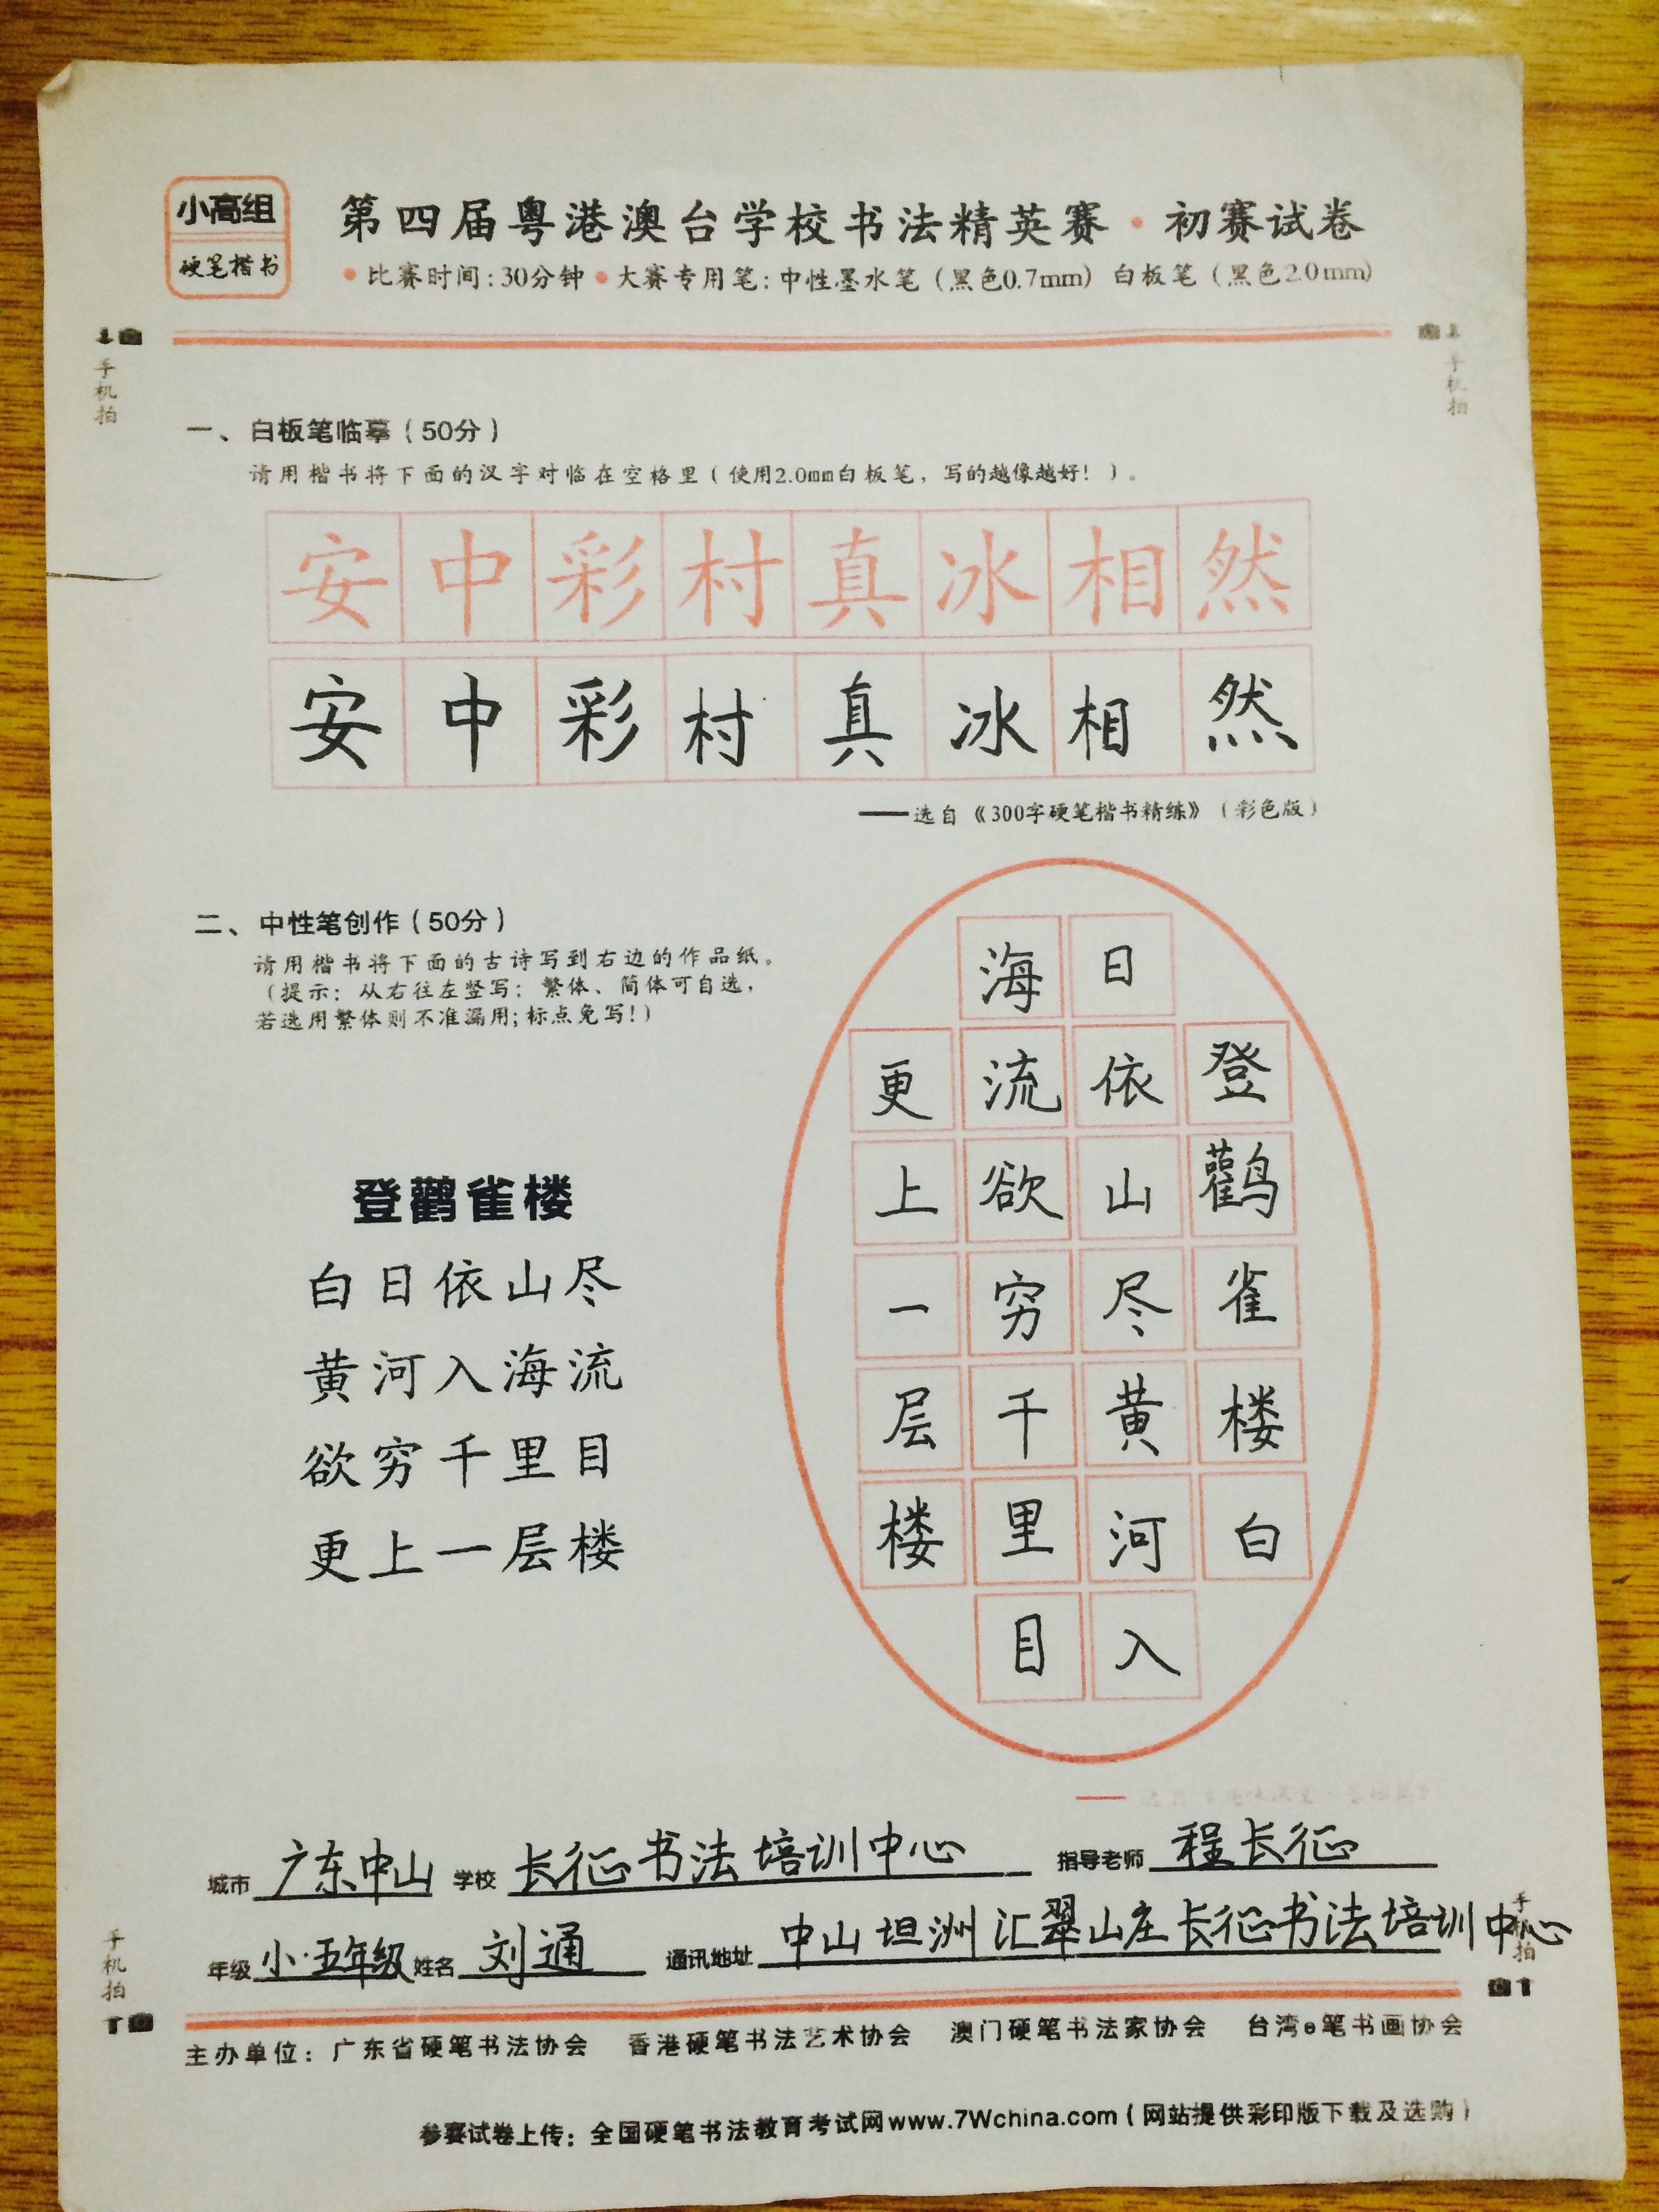 小高组
硬笔楷书
第四届粤港澳台学校书法精英赛·初赛试卷
•比赛时间:30分钟•大赛专用笔:中性墨水笔(黑色0.7mm) 白板笔(黑色2.0mm)
手机拍
手机拍
一、白板笔临摹(50分)
请用楷书将下面的汉字对临在空格里(使用2.0mm白板笔,写的越像越好!)。
安中彩村真冰相然
安中彩村真冰相然
——选自《300字硬笔楷书精练》(彩色版)
二、中性笔创作(50分)
请用楷书将下面的古诗写到右边的作品纸。
(提示:从右往左竖写;繁体、简体可自选,
若选用繁体则不准漏用;标点免写!)
登鸛雀楼
白日依山尽
黄河入海流
欲穷千里目
更上一层楼
登鹳雀楼白
日依山尽黄河入
海流欲穷千里目
更上一层楼
城市 广东中山 学校 长征书法培训中心 指导老师 程长征
年级 小·五年级 姓名 刘通 通讯地址 中山坦洲汇翠山庄长征书法培训中心
手机拍
手机拍
主办单位:广东省硬笔书法协会 香港硬笔书法艺术协会 澳门硬笔书法家协会 台湾e笔书画协会
参赛试卷上传:全国硬笔书法教育考试网www.7Wchina.com(网站提供彩印版下载及选购)